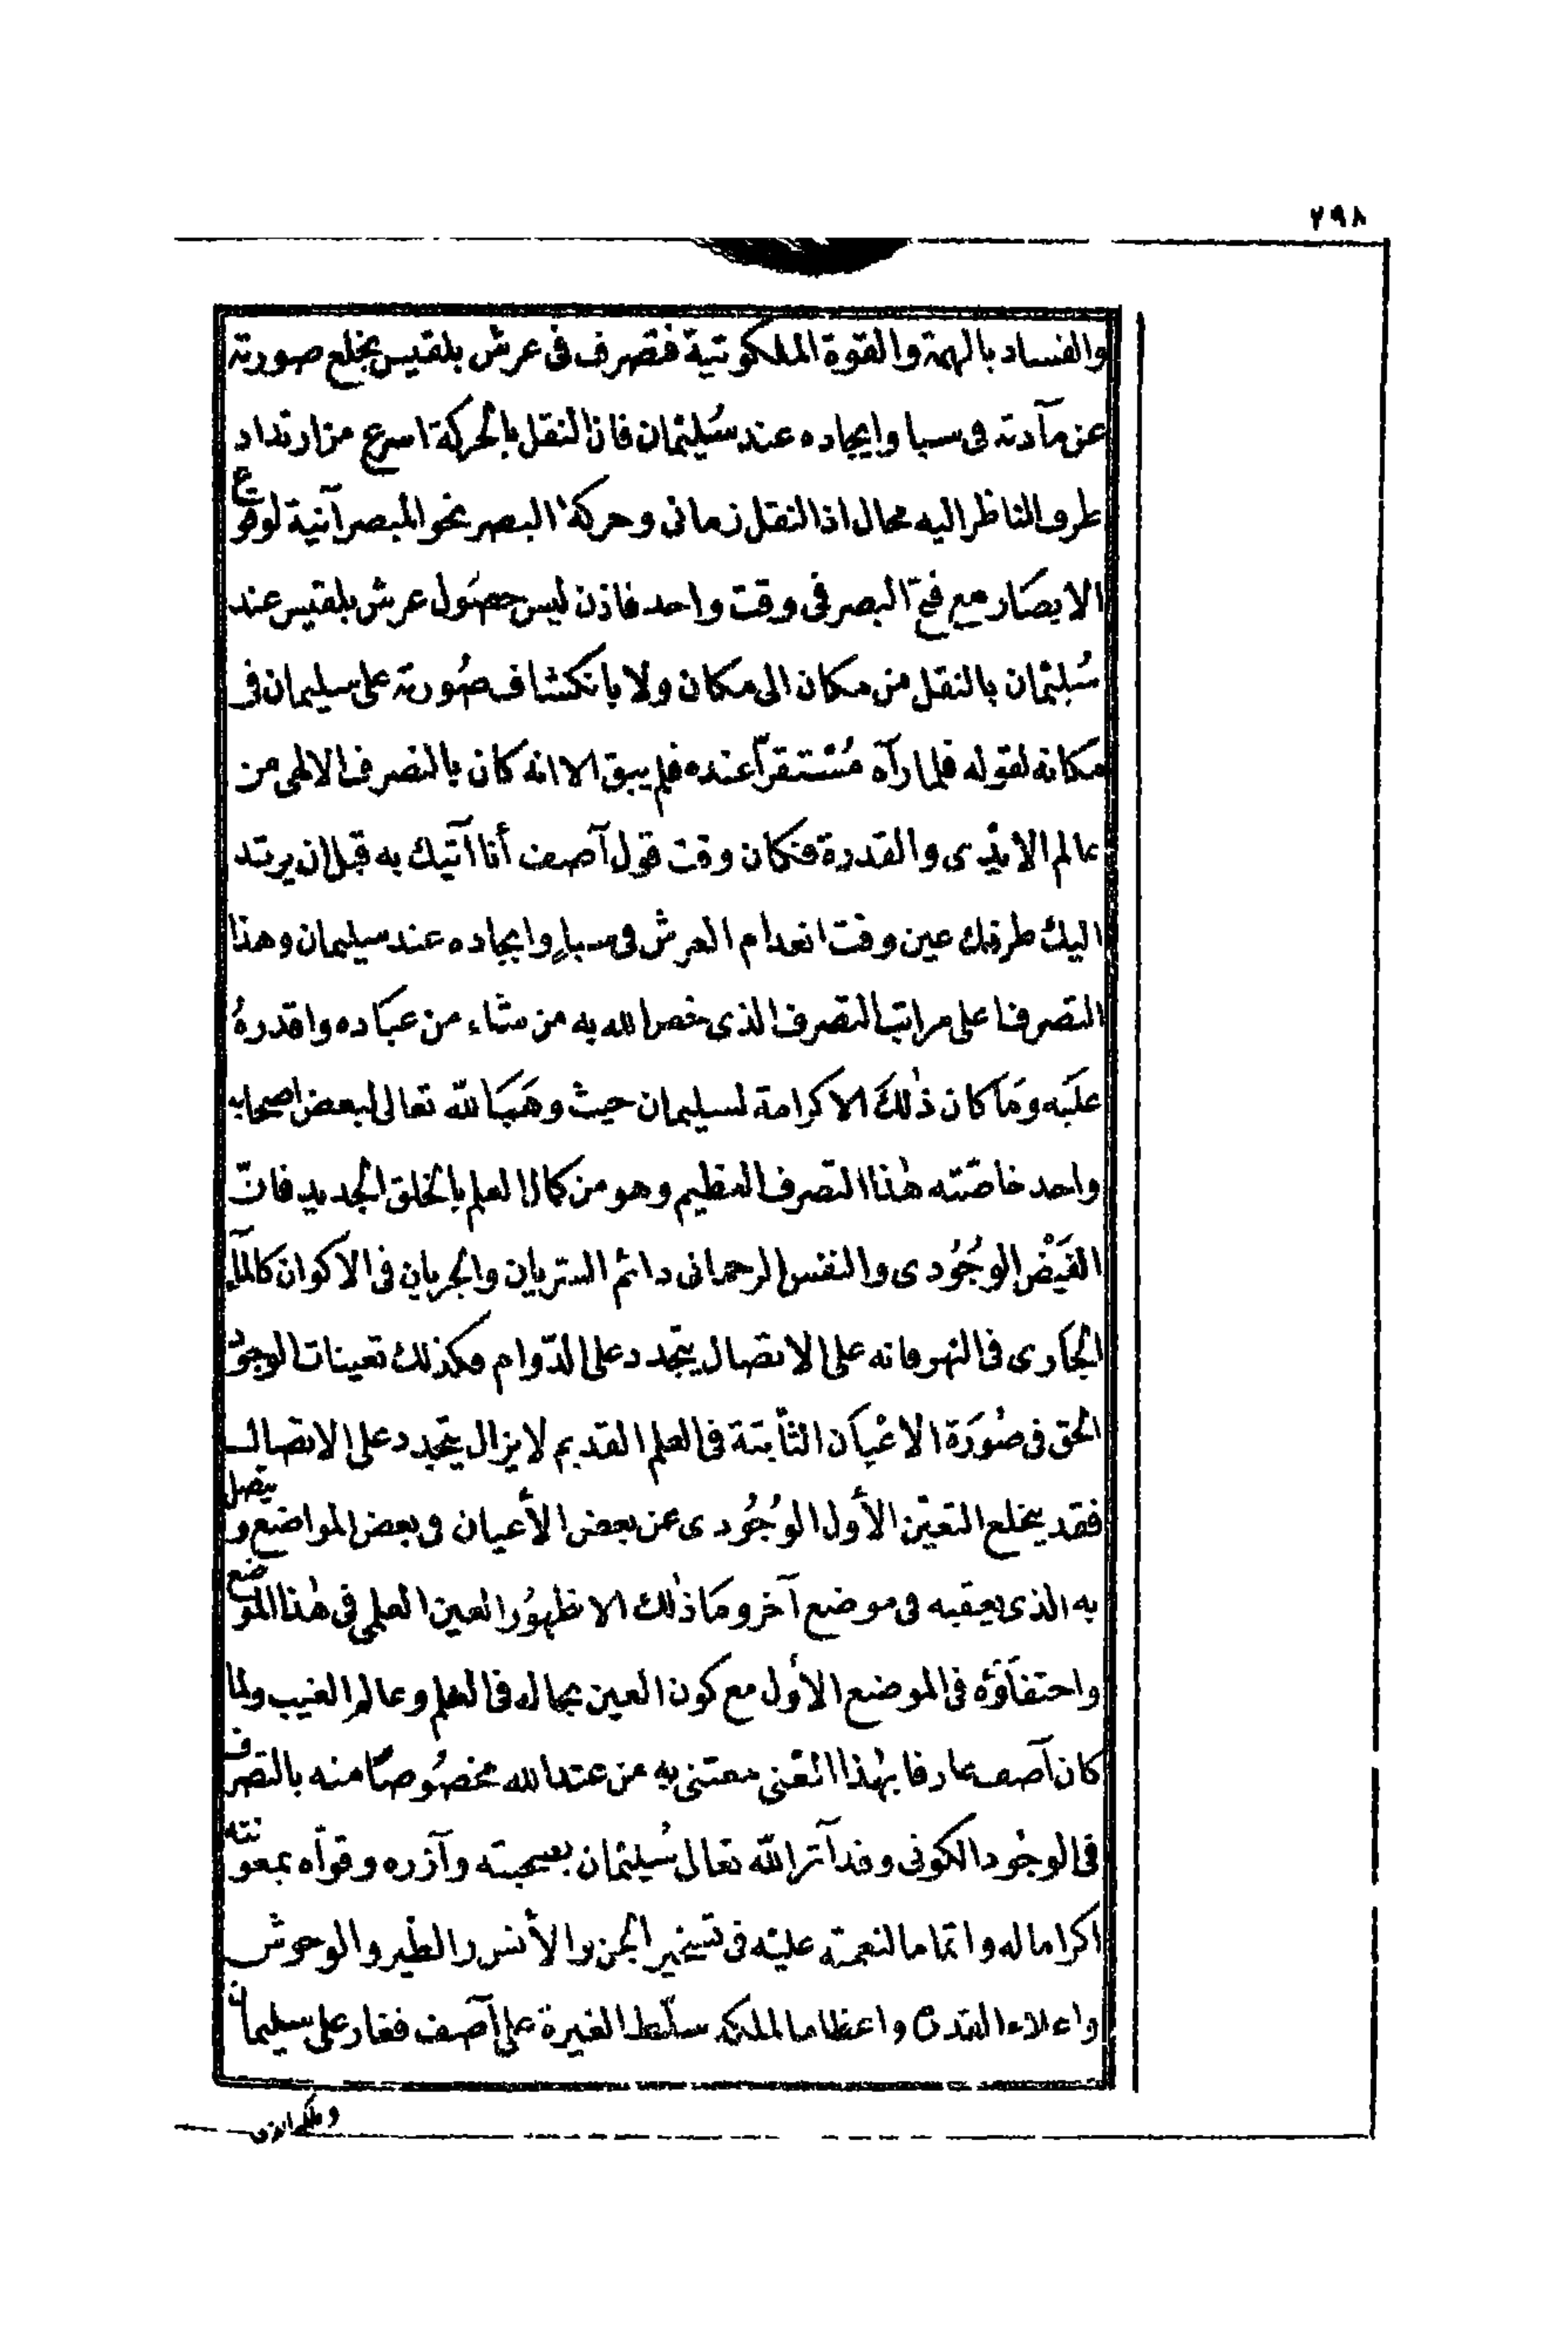 ٢٩٨
والفساد بالهمة والقوة الملكوتية فتصرف فى عرش بلقيس بخلع صورته
عن مآدته فى سبا وايجاده عند سُليمان فان النقل بالحركة اسرع من ارتداد
طرف الناظر اليه محال اذ النقل زمانى وحركة البصر نحو المبصر آنية لوقوع
الابصَار مع فتح البصر فى وقت واحد فاذن ليس حصُول عرش بلقيس عند
سُليمان بالنقل من مكان الى مكان ولا بانكشاف صُورته على سليمان فى
مكانه لقوله فلما رآه مُستقرّاً عنده فلم يبق الا انه كان بالتصرف الالهى من
عالم الايدى والقدرة فكان وقت قول آصف أنا آتيك به قبل ان يرتد
اليك طرفك عين وقت انعدام العرش فى سباٍ وايجاده عند سليمان وهذا
التصرف اعلى مراتب التصرف الذى خص الله به من شاء من عبَاده واقدرهُ
علَيه ومَا كان ذٰلكَ الا كرامة لسليمان حيث وهَبَ الله تعالى لبعض اصحابه
واحد خاصّته هٰذا التصرف العظيم وهو من كمال العلم بالخلق الجديد فانّ
الفَيْض الوُجُودى والنفس الرحمانى دائم السّريان والجريان فى الاكوان كالمآء
الجَارى فى النهر فانه على الاتصال يتجدد على الدّوام فكذلك تعينات الوجود
الحق فى صُورَة الاعْيَان الثّابتة فى العلم القديم لا يزال يتجدد على الاتصال
فقد يخلع التعيّن الأول الوُجُودى عن بعض الأعيان فى بعض المواضع ويتصل
به الذى يعقبه فى موضع آخر ومَا ذٰلك الا ظهُور العين العلمى فى هٰذا الموضع
واختفاَؤه فى الموضع الاول مع كون العين بحاله فى العلم وعالم الغيب ولما
كان آصف عارفا بهٰذا المعنى معتنى به من عند الله مخصُوصًا منه بالتصرف
فى الوجُود الكونى وقد آثر الله تعالى سُليمان بصحبته وآزره وقوّاه بمعونته
اكراما له واتماما لنعمته عليْه فى تسخير الجن والأنس والطّير والوحوش
واعلاء القدره واعظاما لملكه سلّط الغيرة على آصف فغار على سليمان
وملكه الذى